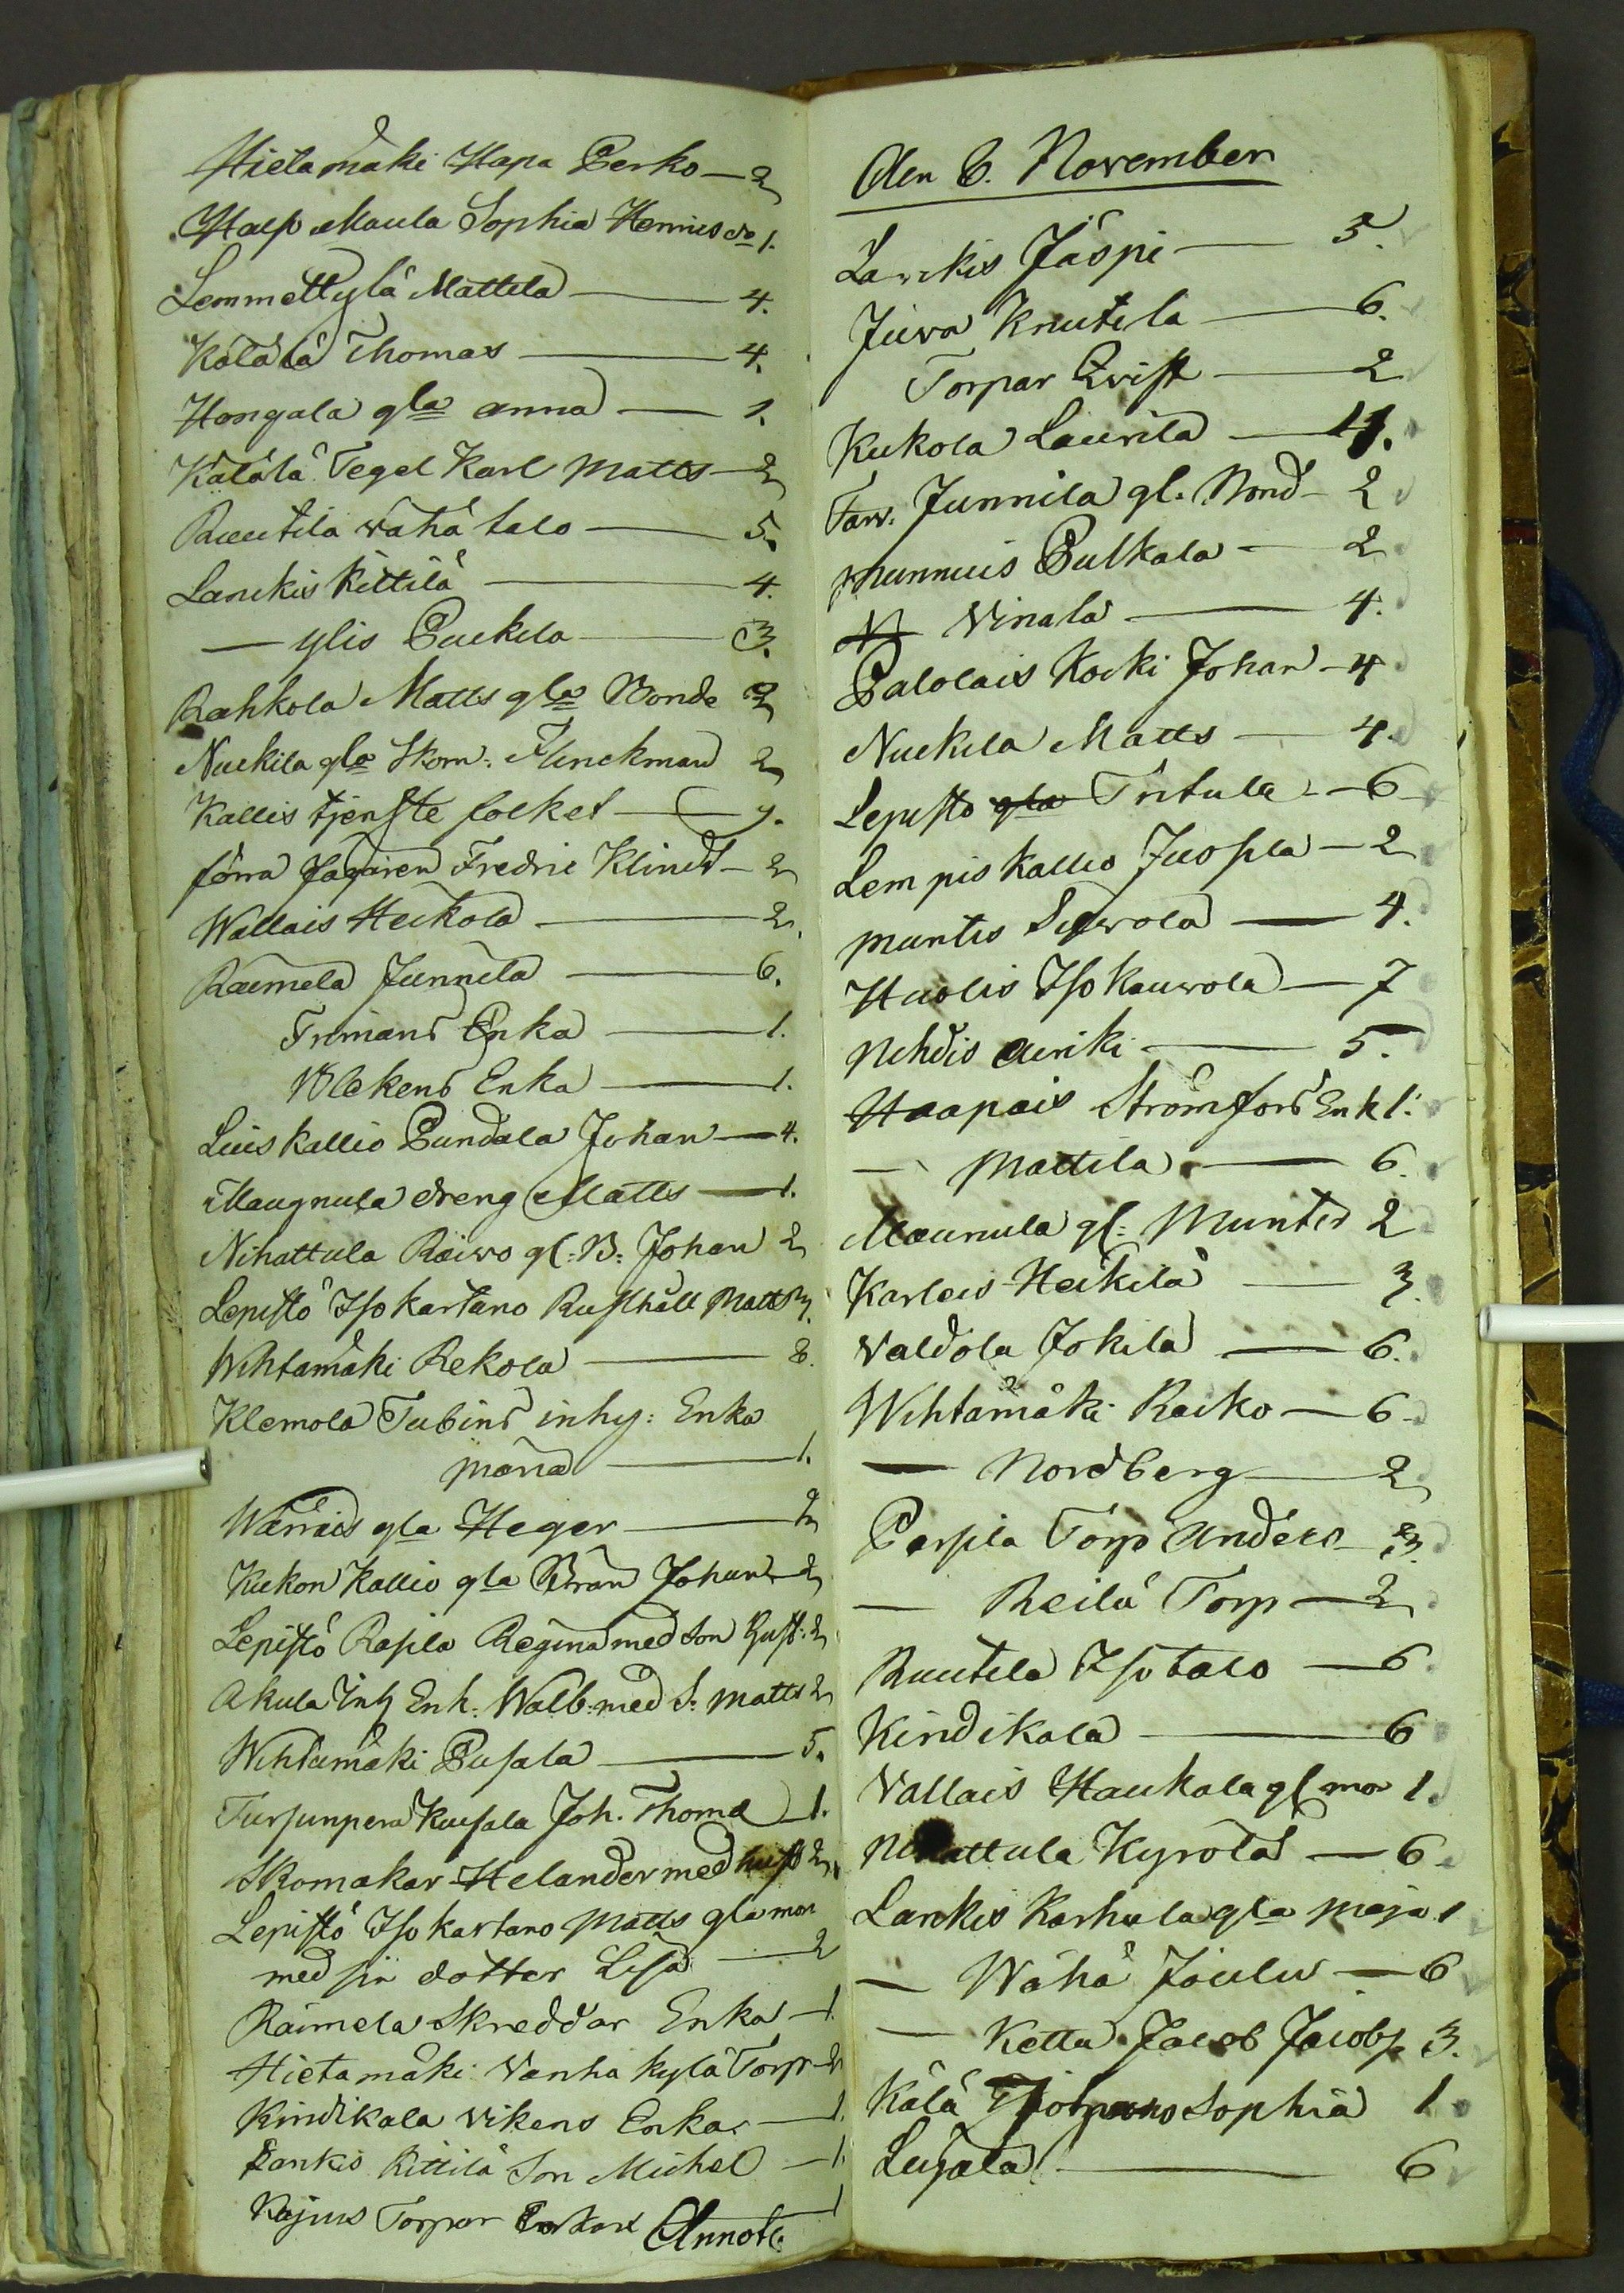 Hietamäki Hapa Perko — 2
Halp Maula Sophia Hennis do 1.
Lemmettylä Mattila — 4.
Kälälä Thomas — 4.
Hongala gla anna — 1.
Kälälä Tegel Karl Matts — 2
Ruutila Wähä talo — 5.
Lanckis Kittilä — 4.
— ylis Puckila — 3.
Rahkola Matts gla Bonde 2
Nuckila gla Skom: Flinckman 2
Kallis tjenste folket — 7.
förra Jägaren Fredric Klindt — 2
Wallais Heikola — 2.
Raumela Junnila — 6.
Trimans Enka — 1.
Blekens Enka — 1.
Luis kallio Pundala Johan — 4.
Maugnula dreng Matts — 1.
Nihattula Raivo gl: B: Johan 2
Lepistö Iso kartano Rusthåll Matts 7.
Wihtamäki Rekola — 8.
Klemola Tubins inhy: Enka
maria — 1.
Warrais gla Heger — 2
Kukon Kallio gla Bran Johan — 2
Lepistö Rasila Regina med Son Gust: 2
Akula Inh Enk: Walb: med S: Matts 2
Wihtamäki Pusala — 5.
Tursunpera Kusala Joh. Thomæ — 1.
Skomakar Helander med hust 2
Lepistö Iso kartano Matts gla mor
med sin dotter Lisa — 2
Räimela Skreddar Enka — 1
Hietamäki Vanha kylä Torp — 2
Kindikala Vikens Enka — 1.
Lankis Kittilä Son Michel — 1.
Kajus Torpar Enkan Annote 1
Den 6. November
Lanckis Jäspi — 5.
Juva Knutila — 6.
Torpar Qvist — 2
Kukola Laurila — 11.
Tarv. Junnila gl. Bond — 2
Munnuis Pulkala — 2
Vinala — 4.
Palolais Kocki Johan — 4
Nuckila Matts — 4.
Lepisto gla Tritula — 6
Lempis kallio Juosila — 2
Muntis Sipwola — 4.
Huolis Iso Kauwola — 7
Nihdis Heiriki — 5.
Haapais Strömfors Enk 1.
— Mattila — 6.
Maunula gl: Munter 2
Karleis Heikilä — 3.
Valdola Jokila — 6.
Wihtamäki Raiko — 6
— Nordberg — 2
Parsila Torp Anders — 3.
— Reilä Torp — 2
Ruutila Iso talo — 6
Kindikala — 6
Vallais Haukala gl mor 1.
Nihattula Kyrölä — 6
Lankis Karhula gla Maja 1
— Wähä Joulu — 6
— Kettu Jacob Jacobs 3.
Kälä Sophia 1
Lujala — 6